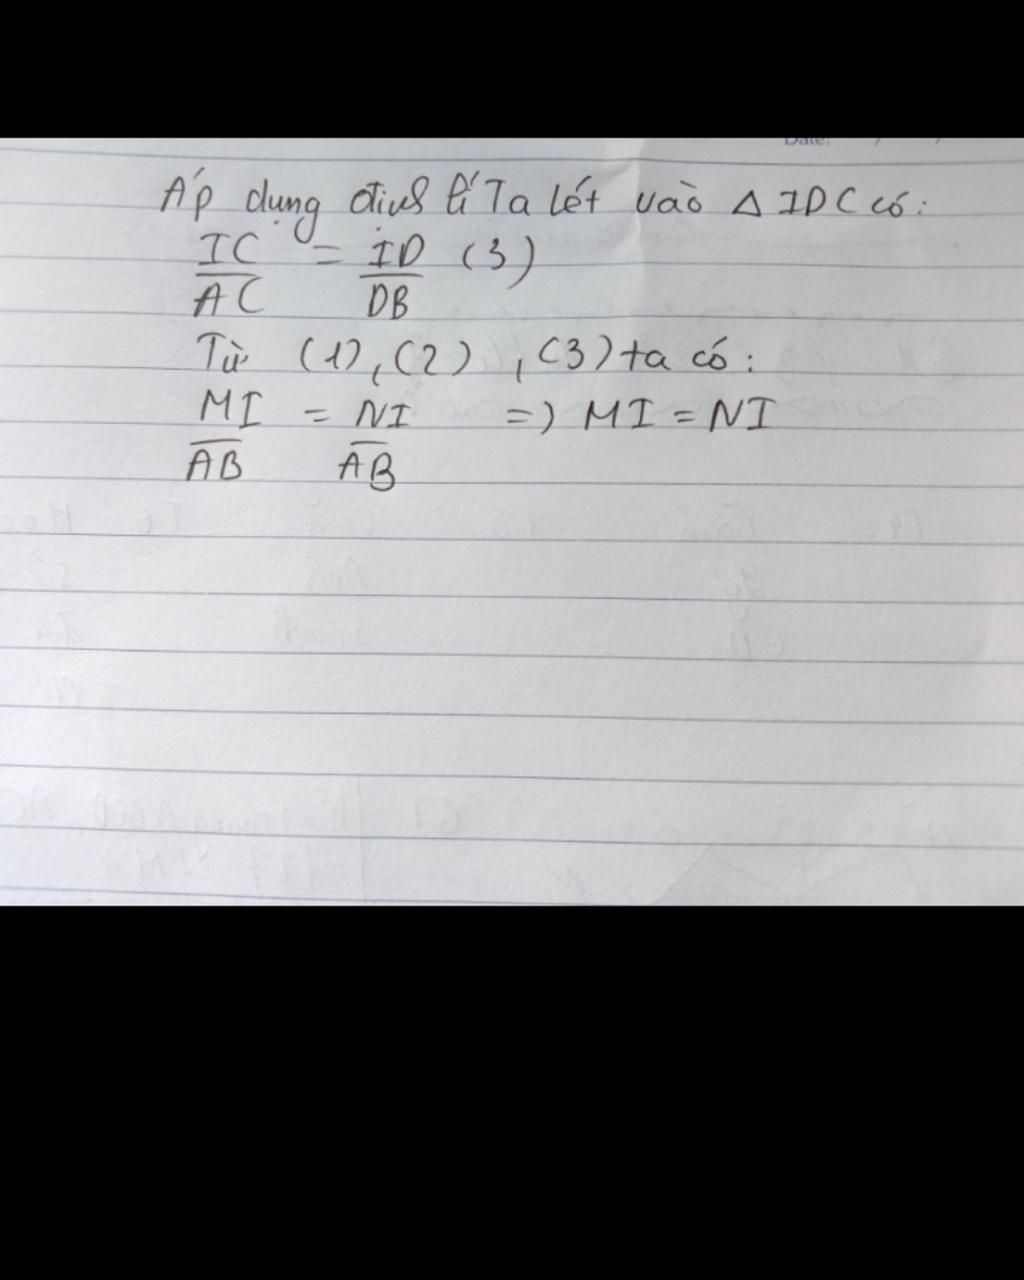 Date: / /
Áp dụng định lí Ta lét vào Δ IDC có:
IC/AC = ID/DB (3)
Từ (1), (2), (3) ta có:
MI/AB = NI/AB => MI = NI